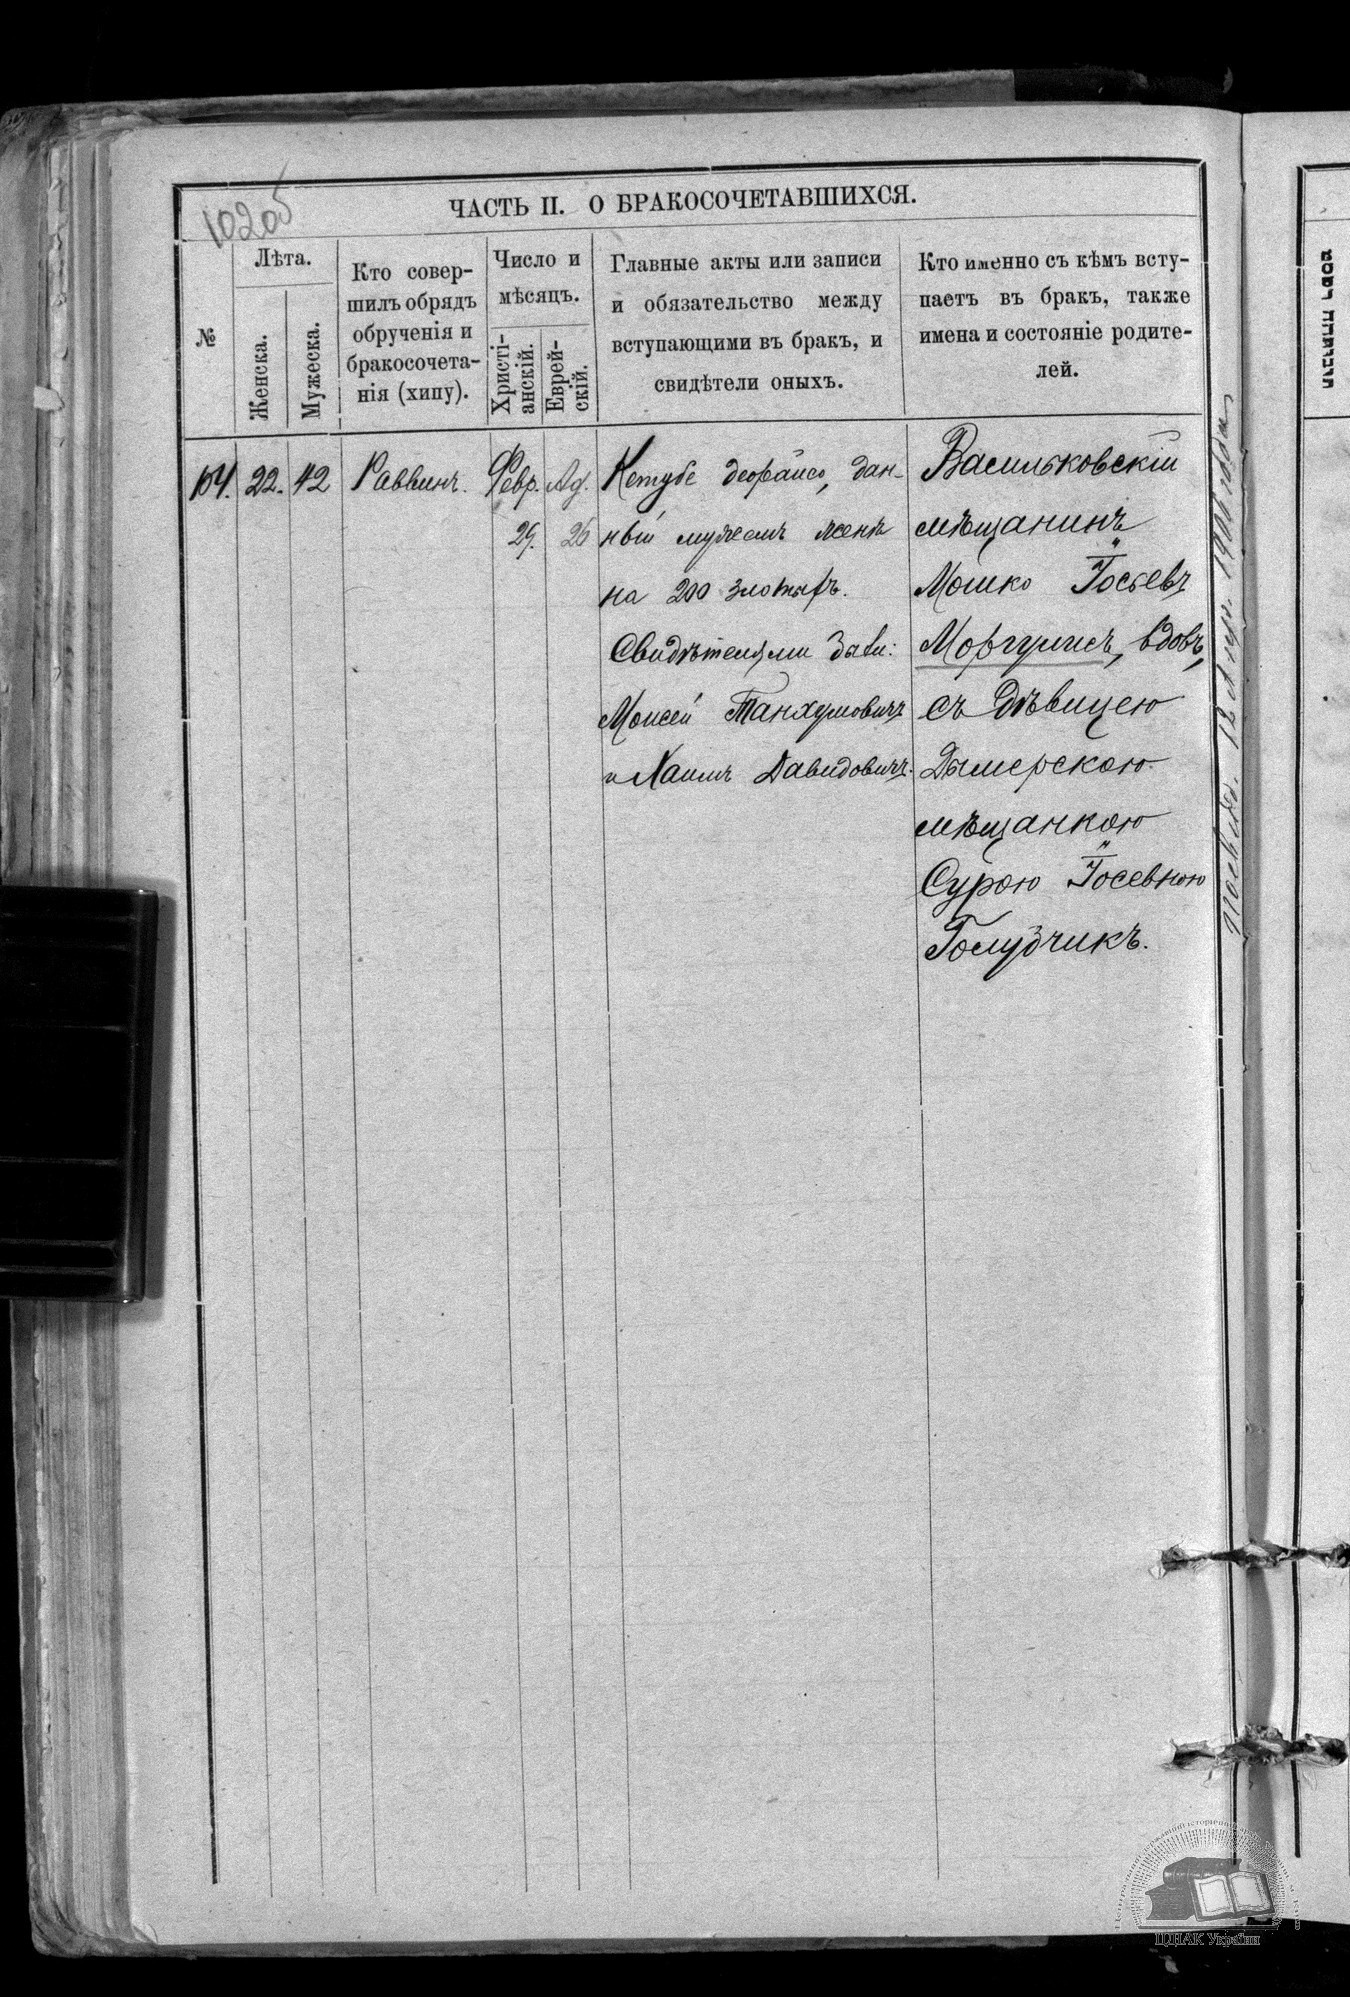 1020
5
ЧАСТЬ II. О БРАКОСОЧЕТАВШИХСЯ.
№
Лѣта.
Женска.
Мужеска.
Кто совер-
шилъ обрядъ
обрученія и
бракосочета-
нія (хипу).
Число и
мѣсяцъ.
Христі-
анскій.
Еврей-
скій.
Главные акты или записи
и обязательство между
вступающими въ бракъ, и
свидѣтели оныхъ.
Кто именно съ кѣмъ всту-
паетъ въ бракъ, также
имена и состояніе родите-
лей.
104.
22.
42
Раввинъ.
Февр.
Ад.
26
Кетубе деорайсо, дан-
ный мужемъ женѣ
на 200 злотыхъ.
Свидѣтелями
Моисей Танхумовичъ
и Хаимъ Давидовичъ.
Васильковскій
мѣщанинъ
Мошко Іосьевъ
Моргулисъ, вдовъ,
съ дѣвицею
Дымерскою
мѣщанкою
Сурою Іосевною
Голубчикъ.
12 1906 года
ЦДІАК України